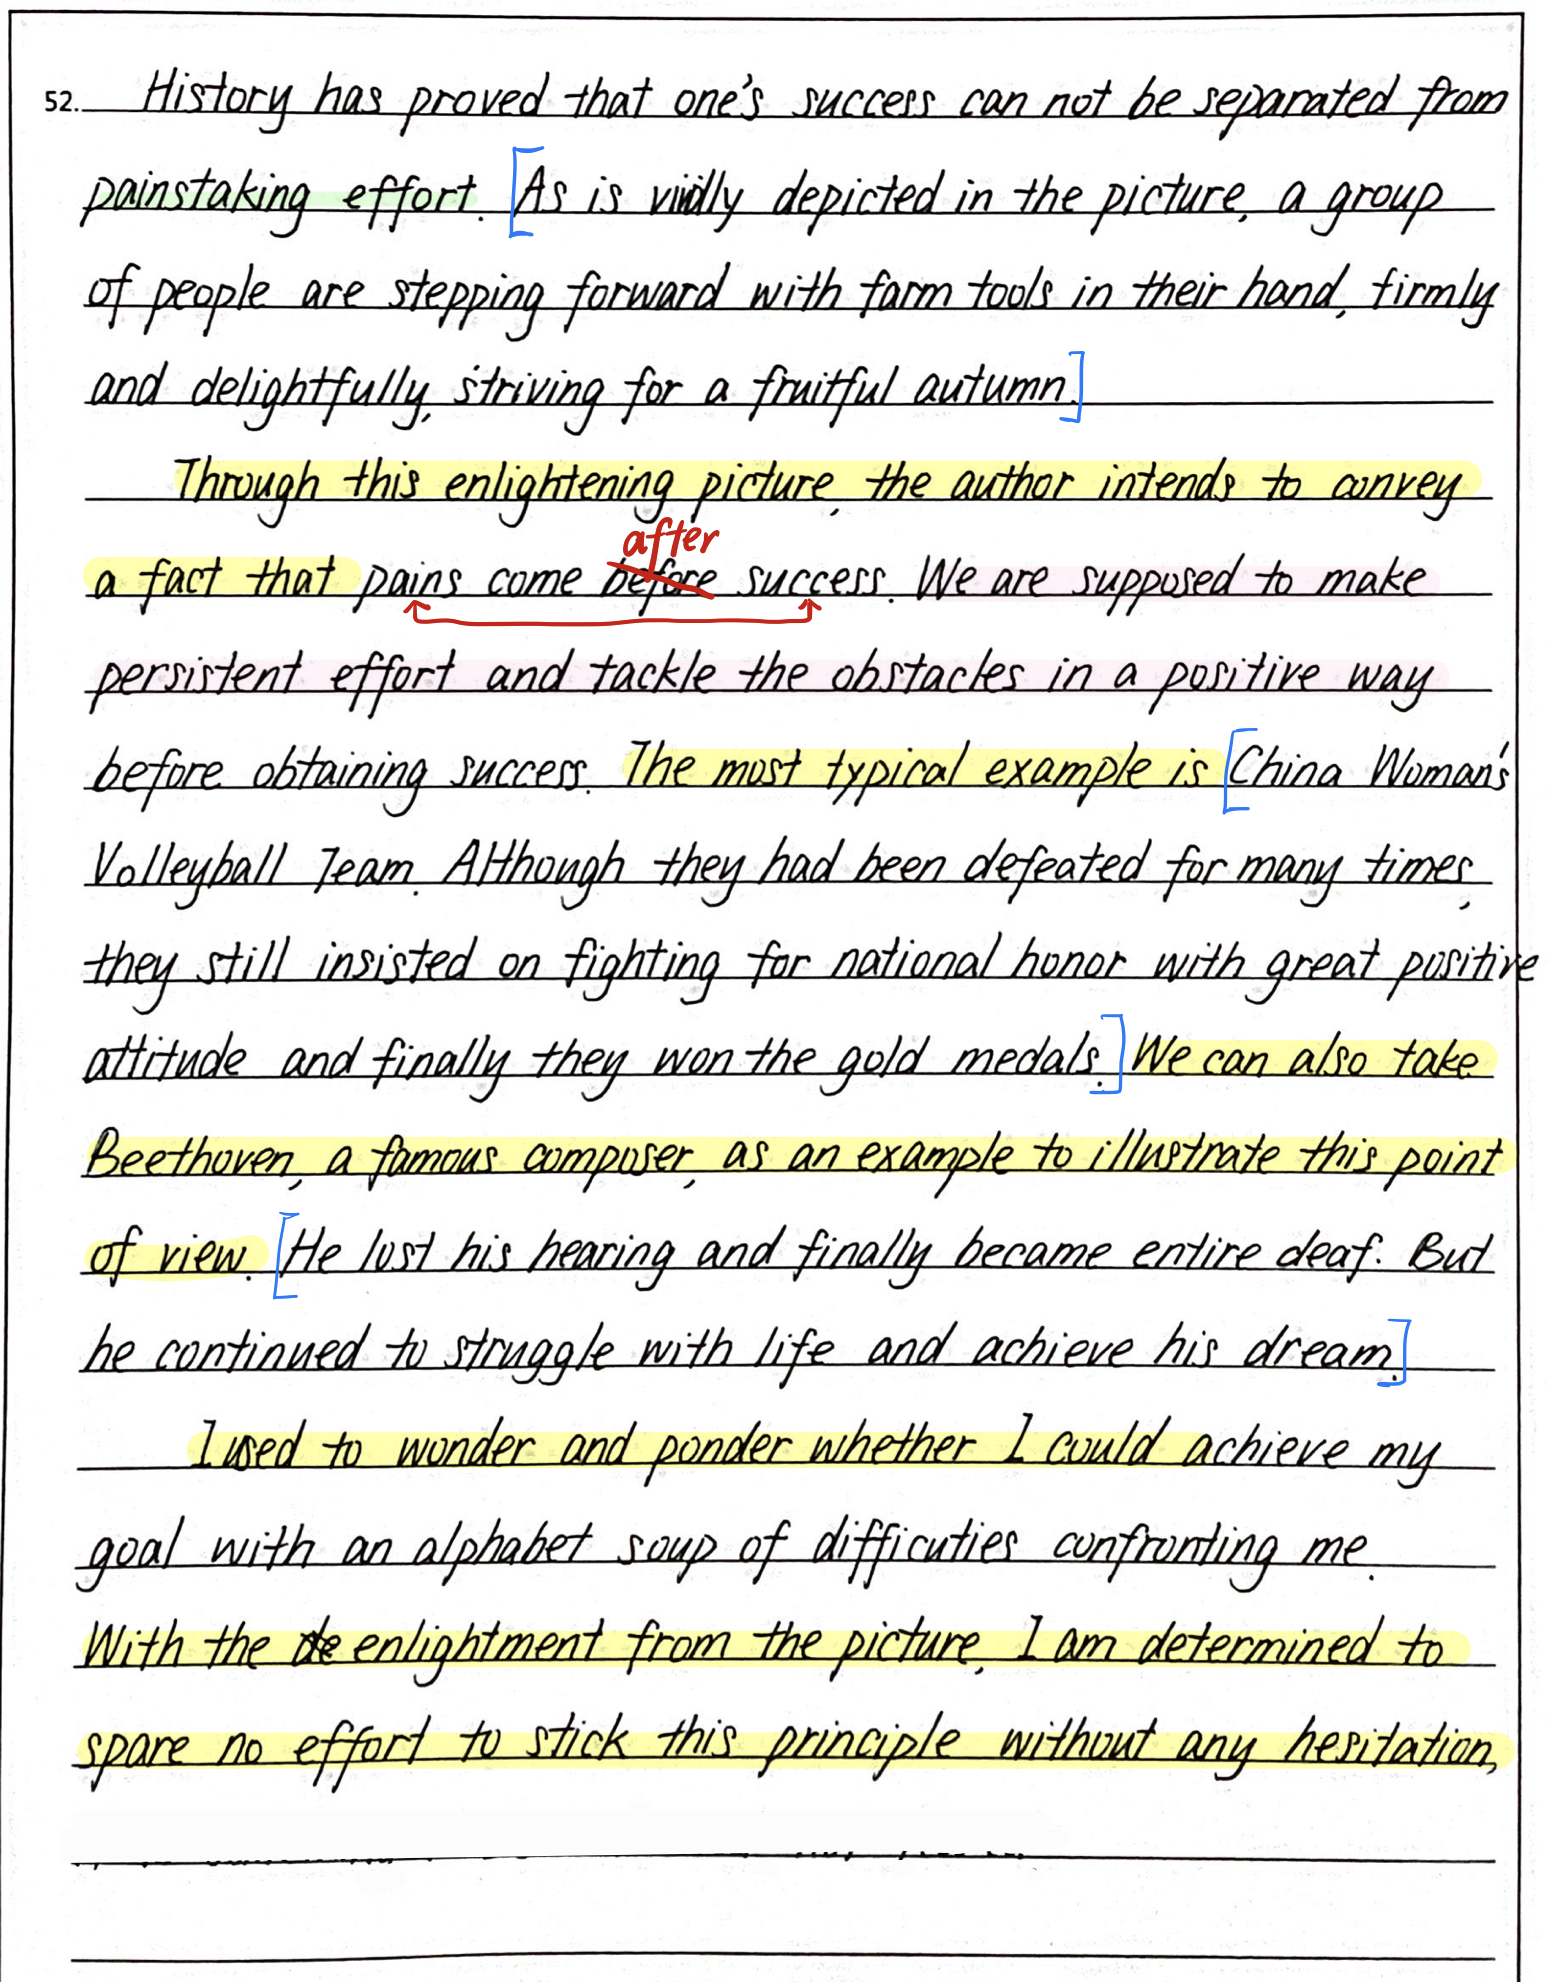 52. History has proved that one's success can not be separated from
painstaking effort. [As is vividly depicted in the picture, a group
of people are stepping forward with farm tools in their hand, firmly
and delightfully, striving for a fruitful autumn.]
Through this enlightening picture, the author intends to convey
after
a fact that pains come before success. We are supposed to make
persistent effort and tackle the obstacles in a positive way
before obtaining success. The most typical example is [China Woman's
Volleyball Team. Although they had been defeated for many times,
they still insisted on fighting for national honor with great positive
attitude and finally they won the gold medals.] We can also take
Beethoven, a famous composer, as an example to illustrate this point
of view. [He lost his hearing and finally became entire deaf. But
he continued to struggle with life and achieve his dream.]
I used to wonder and ponder whether I could achieve my
goal with an alphabet soup of difficuties confronting me.
With the enlightment from the picture, I am determined to
spare no effort to stick this principle without any hesitation,